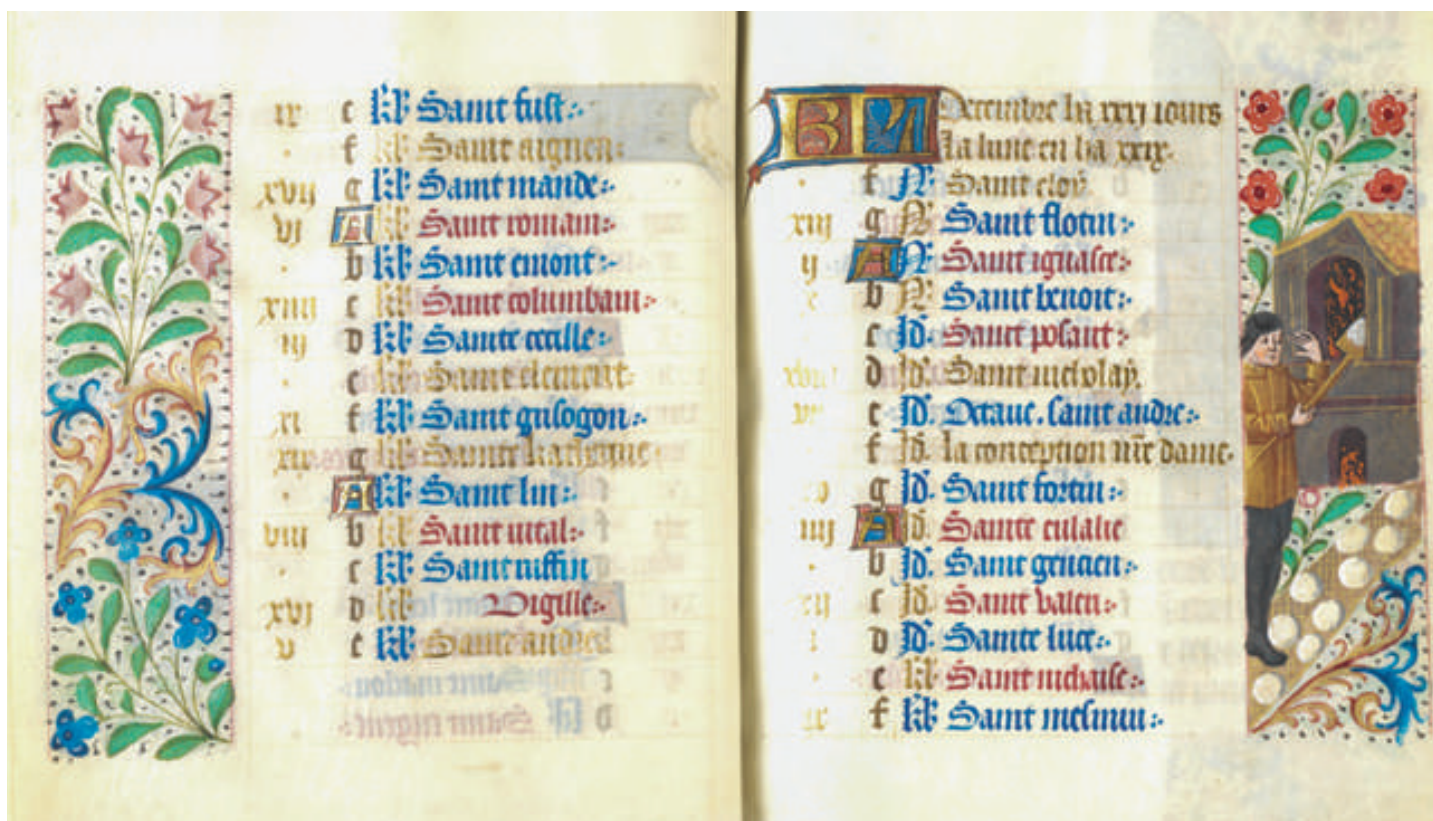 ix e kl Saint fust
f kl Saint aignen
xvij g kl Saint mande
vj A kl Saint romain
b kl Saint emont
xiiij c kl Saint columbain
iij d kl Sainte cecille
e kl Saint clement
xi f kl Saint grisogon
xix g kl Sainte katherine
A kl Saint lin
viij b kl Saint vital
c kl Saint ruffin
xvj d kl Vigille
v e kl Saint andre
Decembre ha xxxj iours
la lune en ha xxix
f N Saint eloy
xiij g N Saint flotin
ij A N Saint ignasce
b N Saint benoit
c Id Saint posant
d Id Saint nicolay
e Id Octave saint andre
f Id la conception nre dame
g Id Saint fortin
A Id Sainte eulalie
b Id Saint gencien
c Id Saint valeri
d Id Sainte luce
e kl Saint nichaise
f kl Saint mesmin